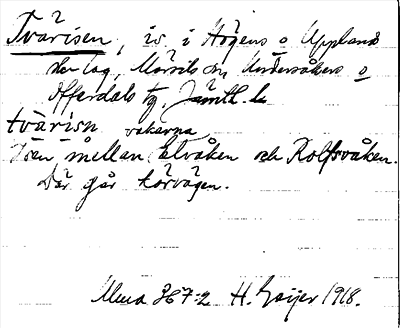 Tvärisen, is i Högens o Upplands
skifteslag, Mörsils sn, Undersåkers o
Offerdals tg, Jämtl. l.
tvärisn vakarna
Isen mellan Elvåken och Rolfsvåken.
Där går körvägen.
Muua 367:2 H. Geijer 1918.